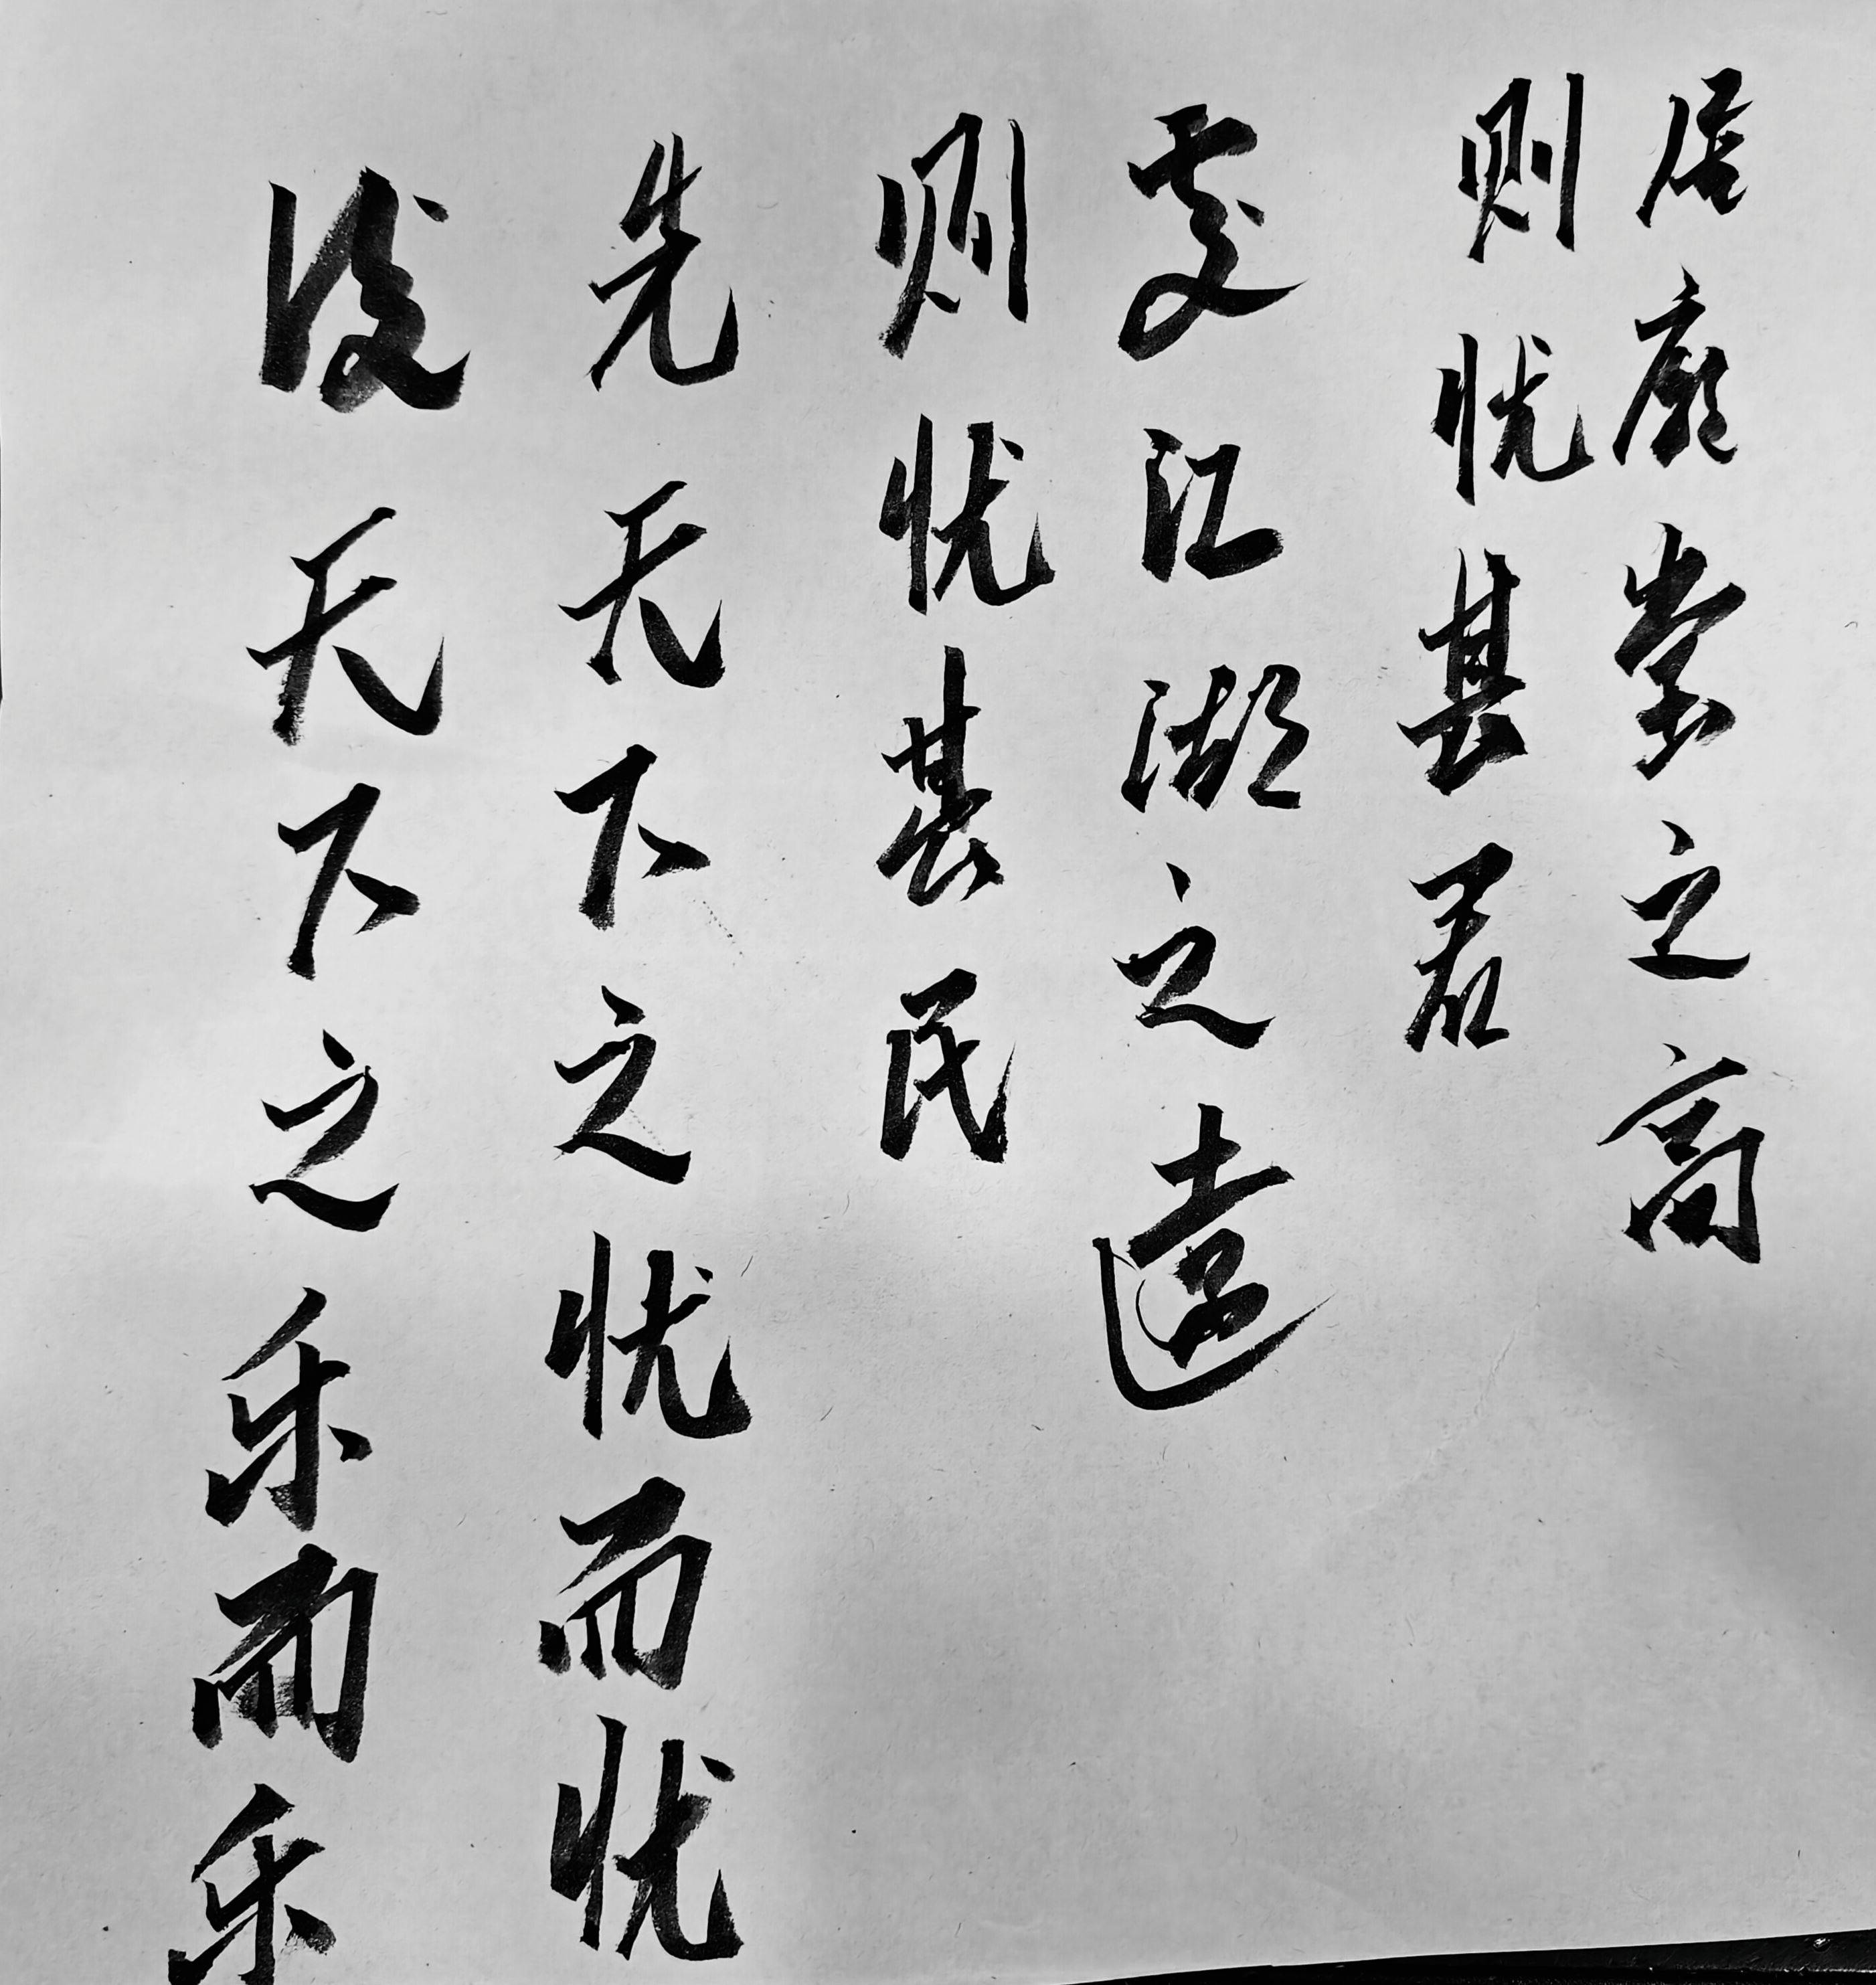 居廟堂之高
则忧其君
處江湖之遠
则忧其民
先天下之忧而忧
後天下之乐而乐